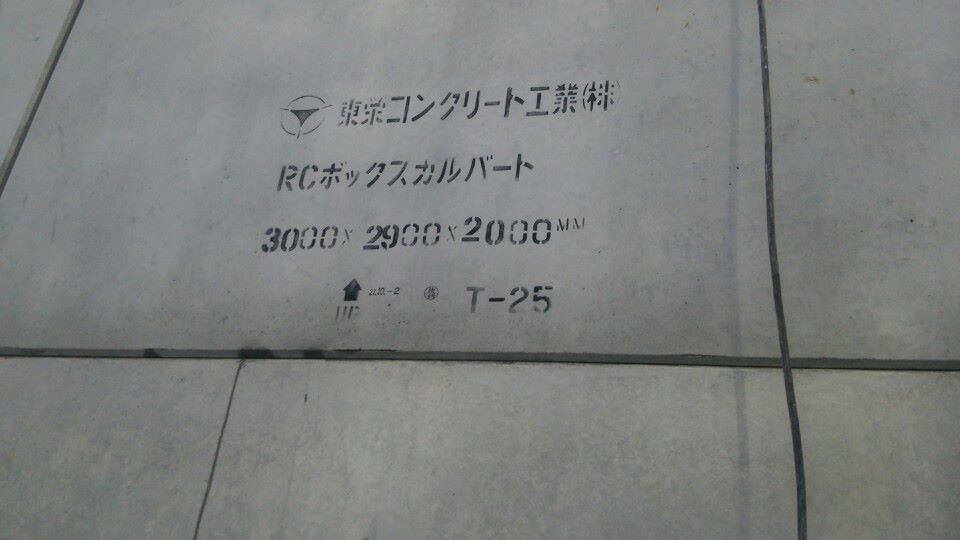 東栄コンクリート工業(株)
RCボックスカルバート
3000×2900×2000MM
UP T-25